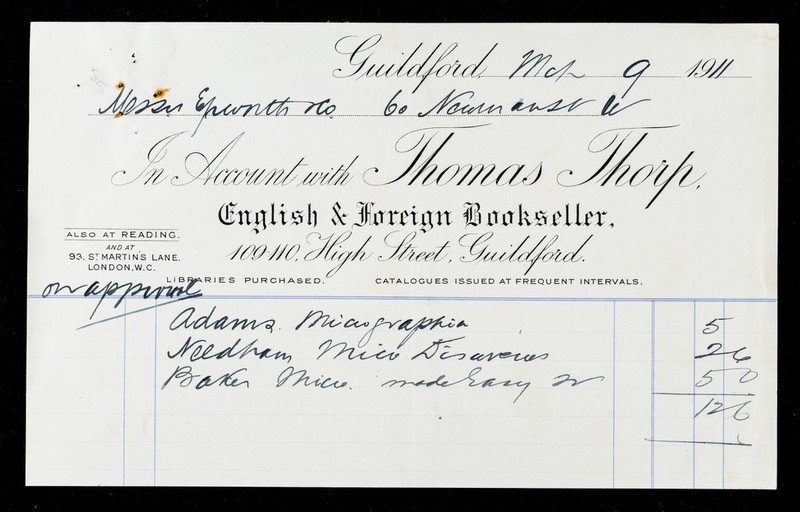 Guildford, Mch 9 1911
Messrs Epworth & Co. 60 Newman St W
In Account with Thomas Thorp,
English & Foreign Bookseller,
109-110, High Street, Guildford.
ALSO AT READING.
AND AT
93, ST MARTIN'S LANE,
LONDON, W.C.
LIBRARIES PURCHASED. CATALOGUES ISSUED AT FREQUENT INTERVALS.
on approval
Adams. Micrographia 5
Needham Micro Discoveries 2 6
Baker Micro. made Easy 5 0
12 6